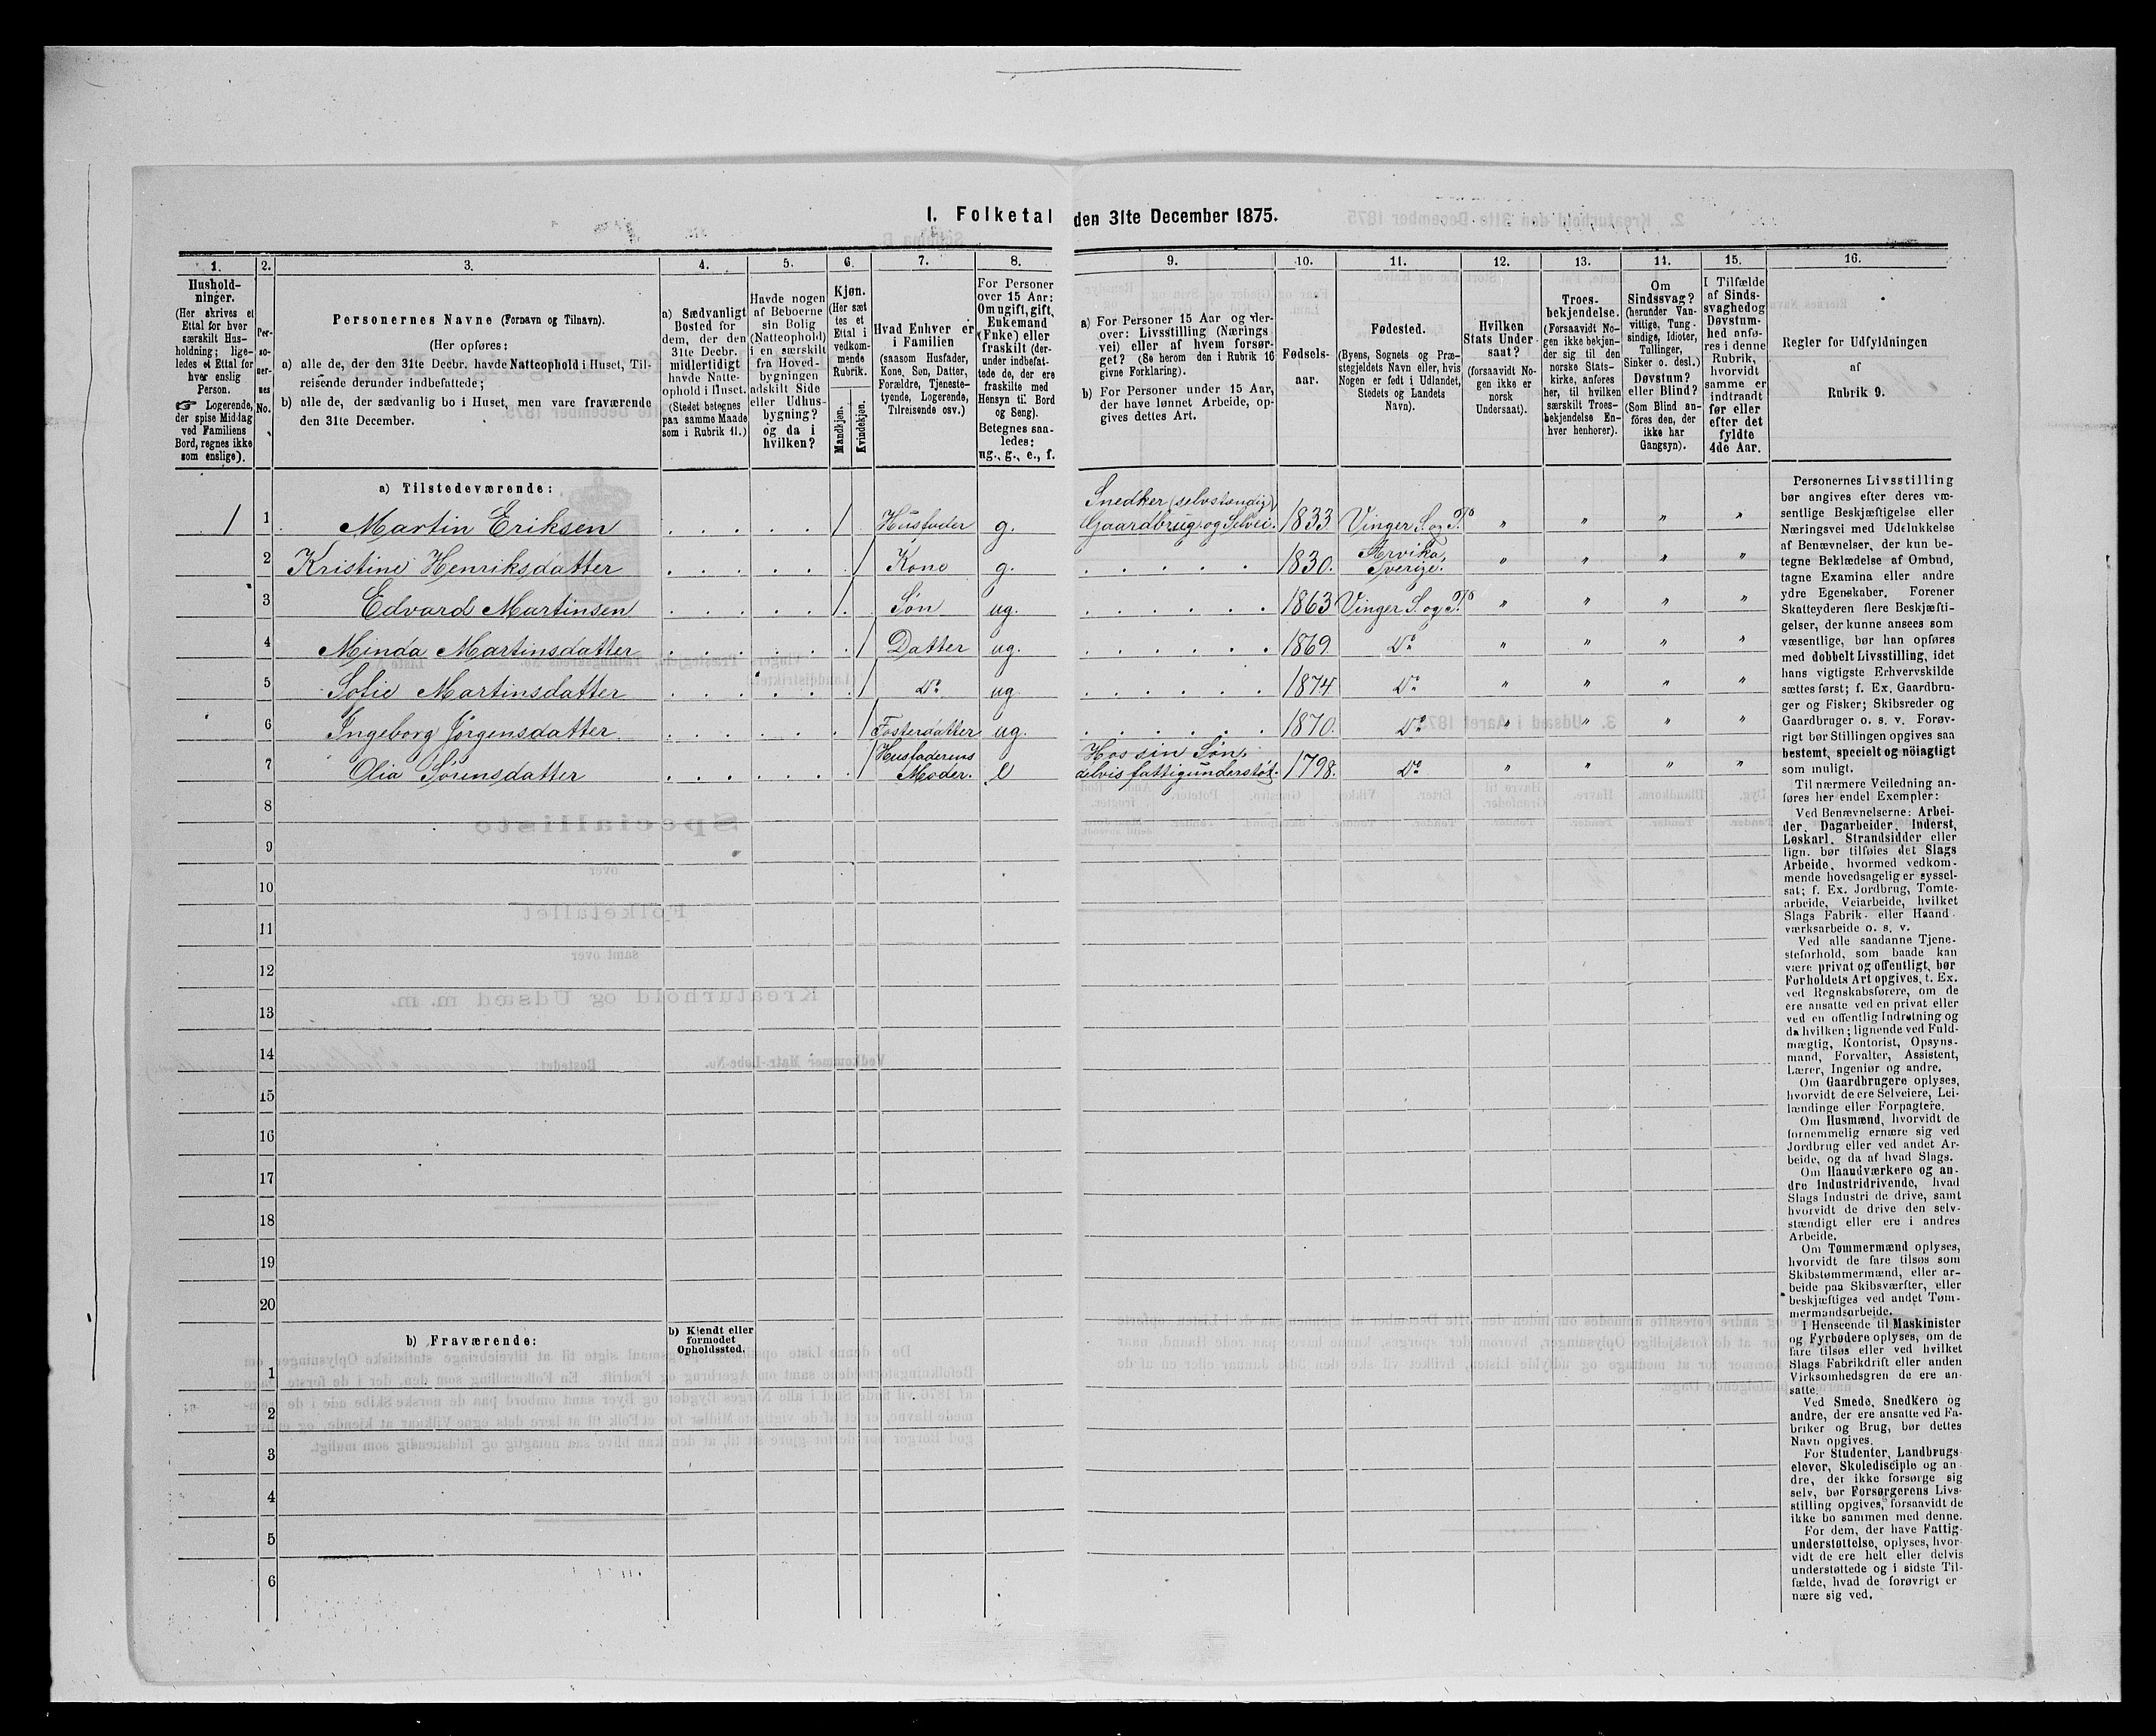 1. Folketal den 31te December 1875.
1.
Hushold-
ninger.
(Her skrives et
Ettal for hver
særskilt Hus-
holdning; lige-
ledes et Ettal for
hver enslig
Person.
☞ Logerende,
der spise Middag
ved Familiens
Bord, regnes ikke
som enslige).
2.
Per-
so-
ner-
nes
No.
3.
Personernes Navne (Fornavn og Tilnavn).
(Her opføres:
a) alle de, der den 31te Decbr. havde Natteophold i Huset, Til-
reisende derunder indbefattede;
b) alle de, der sædvanlig bo i Huset, men vare fraværende
den 31te December.
4.
a) Sædvanligt
Bosted for
dem, der den
31te Decbr.
midlertidigt
havde Natte-
ophold i Huset.
(Stedet betegnes
paa samme Maade
som i Rubrik 11.)
5.
Havde nogen
af Beboerne
sin Bolig
(Natteophold)
i en særskilt
fra Hoved-
bygningen
adskilt Side
eller Udhus-
bygning?
og da i
hvilken?
6.
Kjøn.
(Her sæt
tes et
Ettal i
vedkom-
mende
Rubrik.
Mandkjøn.
Kvindekjøn.
7.
Hvad Enhver er
i Familien
(saasom Husfader,
Kone, Søn, Datter,
Forældre, Tjeneste-
tyende, Logerende,
Tilreisende osv.)
8.
For Personer
over 15 Aar:
Om ugift, gift,
Enkemand
(Enke) eller
fraskilt (der-
under indbefat-
tede de, der ere
fraskilte med
Hensyn til Bord
og Seng).
Betegnes saa-
ledes:
ug., g., e., f.
9.
a) For Personer 15 Aar og der-
over: Livsstilling (Nærings
vei) eller af hvem forsør-
get? (Se herom den i Rubrik 16
givne Forklaring).
b) For Personer under 15 Aar,
der have lønnet Arbeide, op-
gives dettes Art.
10.
Fødsels-
aar.
11.
Fødested.
(Byens, Sognets og Præ-
stegjeldets Navn eller, hvis
Nogen er født i Udlandet,
Stedets og Landets
Navn).
12.
Hvilken
Stats Under
saat?
(forsaavidt No-
gen ikke er
norsk
Undersaat).
13.
Troes-
bekjendelse.
(Forsaavidt No-
gen ikke bekjen-
der sig til den
norske Stats-
kirke, anføres
her, til hvilken
særskilt Troes-
bekjendelse En-
hver henhører).
14.
Om
Sindssvag?
(herunder Van-
vittige, Tung-
sindige, Idioter,
Tullinger,
Sinker o. desl.)
Døvstum?
eller Blind?
(Som Blind an-
føres den, der
ikke har
Gangsyn).
15.
I Tilfælde
af Sinds-
svaghed og
Døvstum-
hed anfø-
res i denne
Rubrik,
hvorvidt
samme er
indtraadt
før eller
efter det
fyldte
4de Aar.
16.
Regler for Udfyldningen
af
Rubrik 9.
a) Tilstedeværende:
1 1 Martin Eriksen 1 Husfader g. Snedker (selvstændig) Gaardbrug. og Selvei. 1833 Vinger S. og P. " " " "
2 Kristine Henriksdatter 1 Kone g. 1830. Arvika, Sverige. " " " "
3 Edvard Martinsen 1 Søn ug. 1863 Vinger S. og P. " " " "
4 Minda Martinsdatter 1 Datter ug. 1869 Do " " " "
5 Sofie Martinsdatter 1 Do ug 1874 Do " " " "
6 Ingeborg Jørgensdatter 1 Fosterdatter ug. 1870. Do " " " "
7 Olia Sørensdatter 1 Husfaderens Moder. e Hos sin Søn, delvis fattigunderstøt. 1798. Do " " " "
8
9
10
11
12
13
14
15
16
17
18
19
20
b) Fraværende:
b) Kjendt eller
formodet
Opholdssted.
1
2
3
4
5
6
Personernes Livsstilling
bør angives efter deres væ-
sentlige Beskjæftigelse eller
Næringsvei med Udelukkelse
af Benævnelser, der kun be-
tegne Beklædelse af Ombud,
tagne Examina eller andre
ydre Egenskaber. Forener
Skatteyderen flere Beskjæfti-
gelser, der kunne ansees som
væsentlige, bør han opføres
med dobbelt Livsstilling, idet
hans vigtigste Erhvervskilde
sættes først; f. Ex. Gaardbru-
ger og Fisker; Skibsreder og
Gaardbruger o. s. v. Forøv-
rigt bør Stillingen opgives saa
bestemt, specielt og nöiagtigt
som muligt.
Til nærmere Veiledning an-
føres her endel Exempler:
Ved Benævnelserne: Arbei-
der, Dagarbeider, Inderst,
Løskarl, Strandsidder eller
lign. bør tilføies det Slags
Arbeide, hvormed vedkom-
mende hovedsagelig er syssel-
sat; f. Ex. Jordbrug, Tomte-
arbeide, Veiarbeide, hvilket
Slags Fabrik- eller Haand-
værksarbeide o. s. v.
Ved alle saadanne Tjene-
steforhold, som baade kan
være privat og offentligt, bør
Forholdets Art opgives, t. Ex.
ved Regnskabsførere, om de
ere ansatte ved en privat eller
ved en offentlig Indretning og
da hvilken; lignende ved Fuld-
mægtig, Kontorist, Opsyns-
mand, Forvalter, Assistent,
Lærer, Ingeniør og andre.
Om Gaardbrugere oplyses,
hvorvidt de ere Selveiere, Lei-
lændinge eller Forpagtere.
Om Husmænd, hvorvidt de
fornemmelig ernære sig ved
Jordbrug eller ved andet Ar-
beide, og da af hvad Slags.
Om Haandværkere og an-
dre Industridrivende, hvad
Slags Industri de drive, samt
hvorvidt de drive den selv-
stændigt eller ere i andres
Arbeide.
Om Tømmermænd oplyses,
hvorvidt de fare tilsøs som
Skibstømmermænd, eller ar-
beide paa Skibsværfter, eller
beskjæftiges ved andet Tøm-
mermandsarbeide.
I Henseende til Maskinister
og Fyrbødere oplyses, om de
fare tilsøs eller ved hvilket
Slags Fabrikdrift eller anden
Virksomhedsgren de ere an-
satte.
Ved Smede, Snedkere og
andre, der ere ansatte ved Fa-
briker og Brug, bør dettes
Navn opgives.
For Studenter, Landbrugs-
elever, Skoledisciple og an-
dre, der ikke forsørge sig
selv, bør Forsørgerens Livs-
stilling opgives, forsaavidt de
ikke bo sammen med denne.
For dem, der have Fattig-
understøttelse, oplyses, hvor-
vidt de ere helt eller delvis
understøttede og i sidste Til-
fælde, hvad de forøvrigt er
nære sig ved.